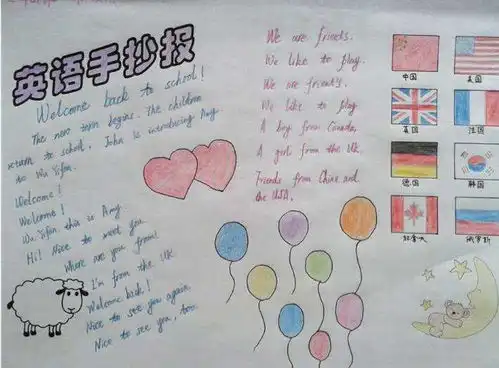 英语手抄报
Welcome back to school!
The new term begins. The children
return to school. John is introducing Amy
to Wu Yifan.
Welcome!
Welcome!
Wu Yifan this is Amy
Hi! Nice to meet you
Where are you from?
I'm from the UK
Welcome back!
Nice to see you again
Nice to see you, too.
We are friends.
We like to play.
We are friends.
We like to play
A boy from Canada,
A girl from the UK.
Friends from China and
the USA.
中国
美国
英国
法国
德国
韩国
加拿大
俄罗斯